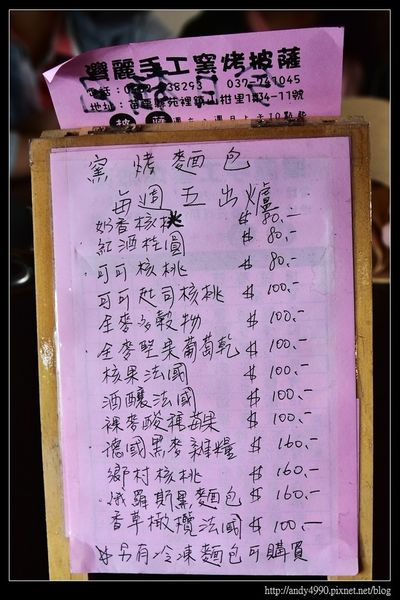 灣麗手工窯烤披薩
037-741045
地址:苗栗縣苑裡鎮山柑里1鄰4-11號
窯烤麵包
每週五出爐
奶香核桃 $80.-
紅酒桂圓 $80.-
可可核桃 $80.-
可可起司核桃 $100.-
全麥多穀物 $100.-
全麥堅果葡萄乾 $100.-
核果法國 $100.-
酒釀法國 $100.-
裸麥酸種莓果 $100.-
德國黑麥雜糧 $160.-
鄉村核桃 $160.-
俄羅斯黑麵包 $160.-
香草橄欖法國 $100.-
另有冷凍麵包可購買
http://andy4990.pixnet.net/blog